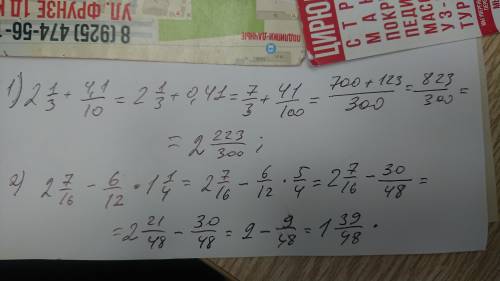 УЛ. ФРУНЗЕ 1Д К
8 (925) 474-56-
ПОДЛОЖКИ-ДАЧНЫЕ
ЦИРЮ
СТР
МАН
ПОКР
ПЕДИ
МАСС
УЗ-
ТУР
1) 2 1/3 + 4,1/10 = 2 1/3 + 0,41 = 7/3 + 41/100 = 700+123/300 = 823/300 =
= 2 223/300 ;
2) 2 7/16 - 6/12 · 1 1/4 = 2 7/16 - 6/12 · 5/4 = 2 7/16 - 30/48 =
= 2 21/48 - 30/48 = 2 - 9/48 = 1 39/48 .